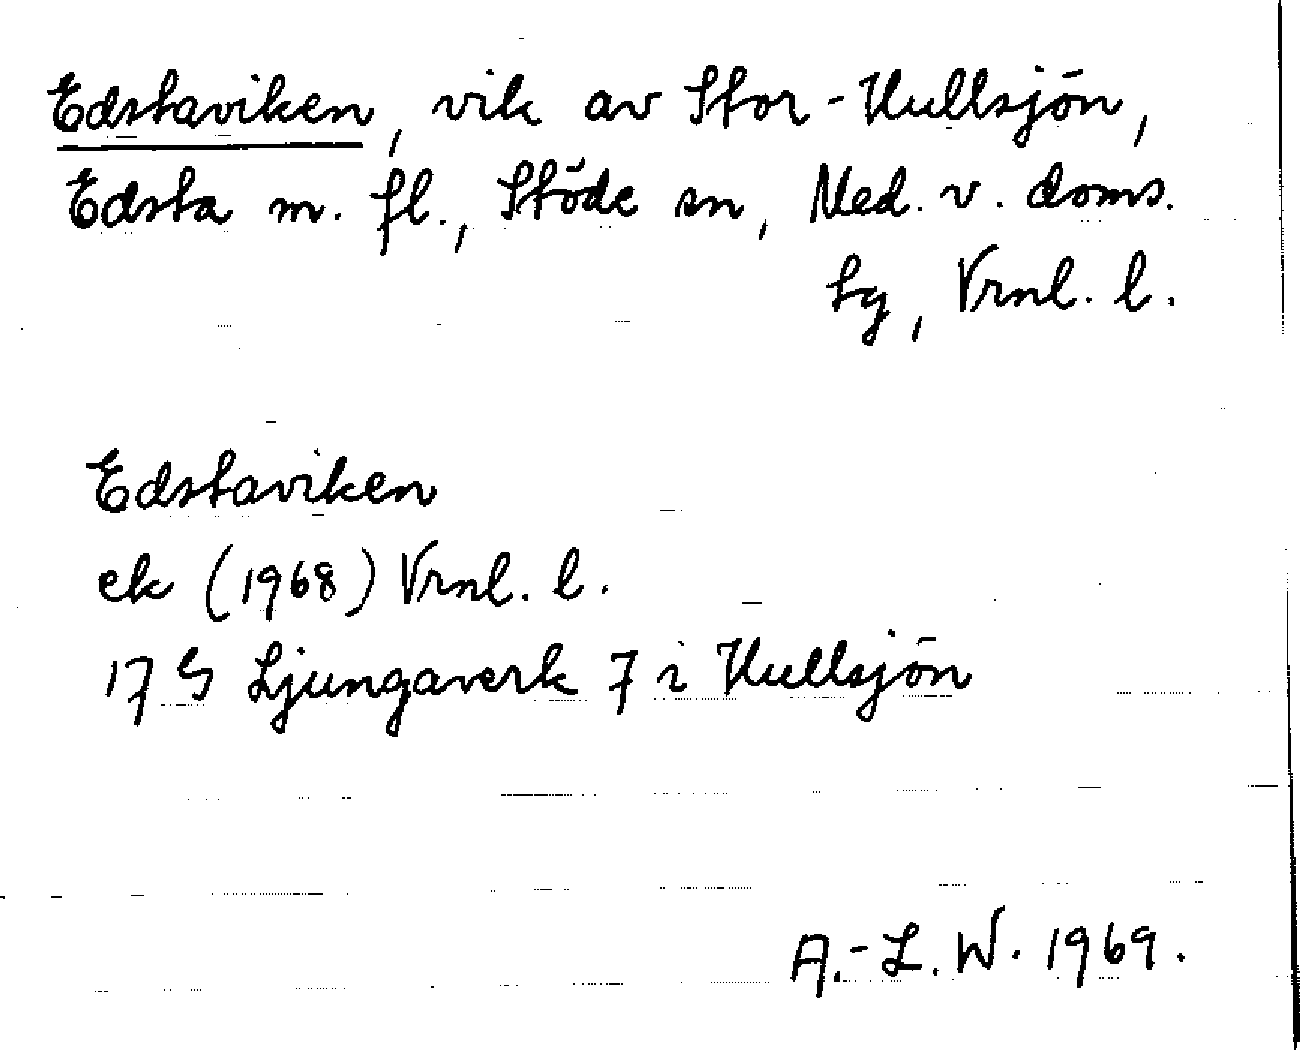 Edstaviken, vik av Stor-Hullsjön,
Edsta m. fl., Stöde sn, Med. v. doms.
sg, Vrnl. l.
Edstaviken
ek (1968) Vrnl. l.
17 G Ljungaverk 7 i Hullsjön
A.-L. W. 1969.